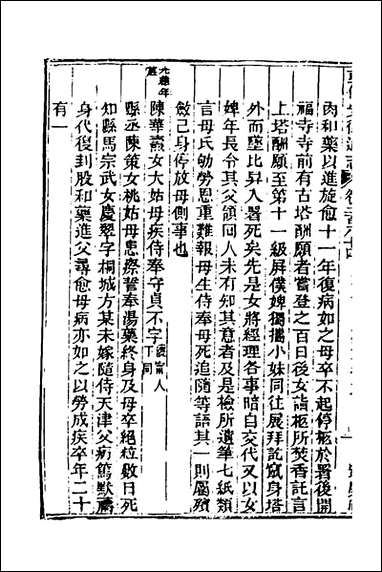 肉和藥以進旋愈十一年復病如之母卒不起停柩於署後開
福寺寺前有古塔酬願者當登之百日後女詣柩所焚香託言
上塔酬願至第十一級屏僕婢獨攜小妹同往展拜訖竄身塔
外而墜比舁入署死矣先是女將經理各事暗自交代又以女
婢年長令其父領回人未有知其意者及是檢所遺筆七紙類
言母氏劬勞恩重難報母生侍奉母死追隨等語其一則屬殯
斂己身停放母側事也
陳華蓁女大姑母疾侍奉守貞不字
縣丞陳策女桃姑母患瘵誓奉湯藥終身及母卒絕粒數日死
知縣馬宗武女慶翠字桐城方某未嫁隨侍天津父病篤默禱
身代復刲股和藥進父尋愈母病亦如之以勞成疾卒年二十
有一